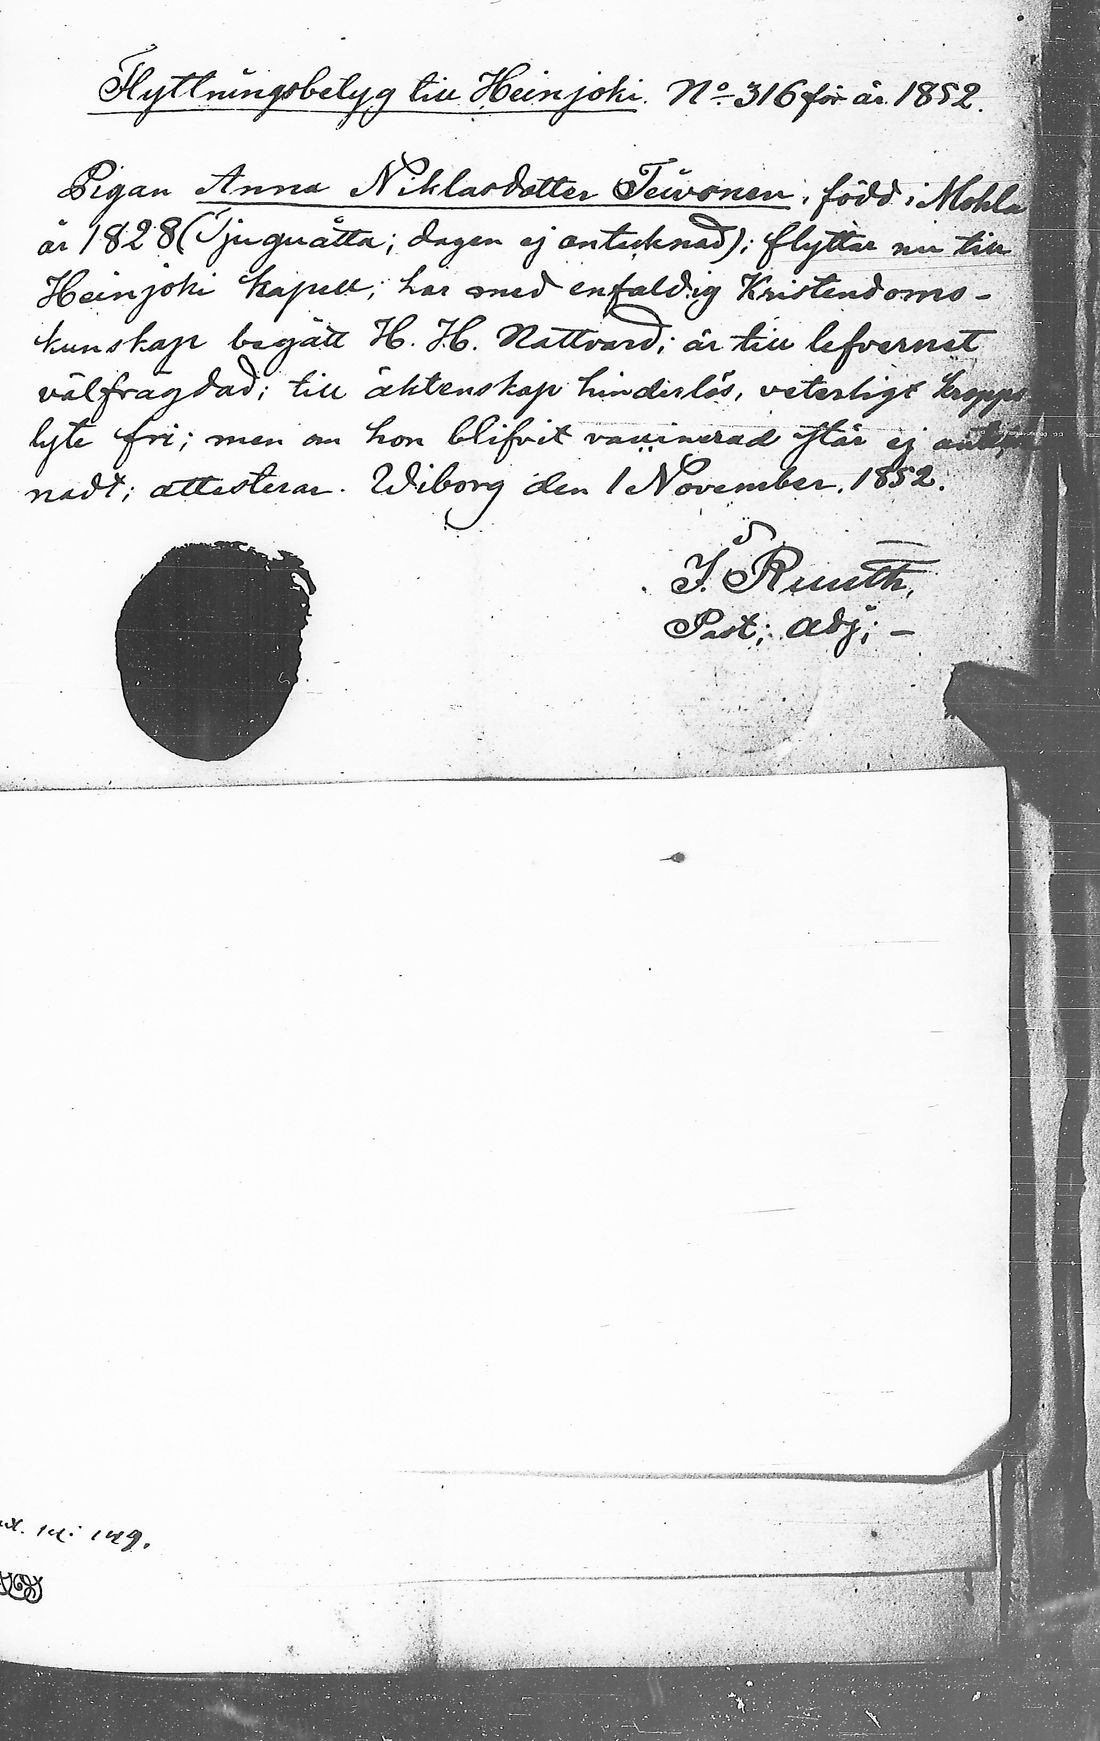 Flyttningsbetyg till Heinjoki. No 316 för år 1852.
Pigan Anna Niklasdotter Teivonen, född i Mohla
år 1828 (Tjuguåtta; dagen ej antecknad); flyttar nu till
Heinjoki kapell; har med enfaldig Kristendoms-
kunskap begått H. H. Nattvard; är till lefvernet
välfrägdad; till äktenskap hinderlös, veterligt kropps
lyte fri; men om hon blifvit vaccinerad står ej
nadt; attesterar. Wiborg den 1 November. 1852.
J. Ruuth,
Past; adj; –
149.